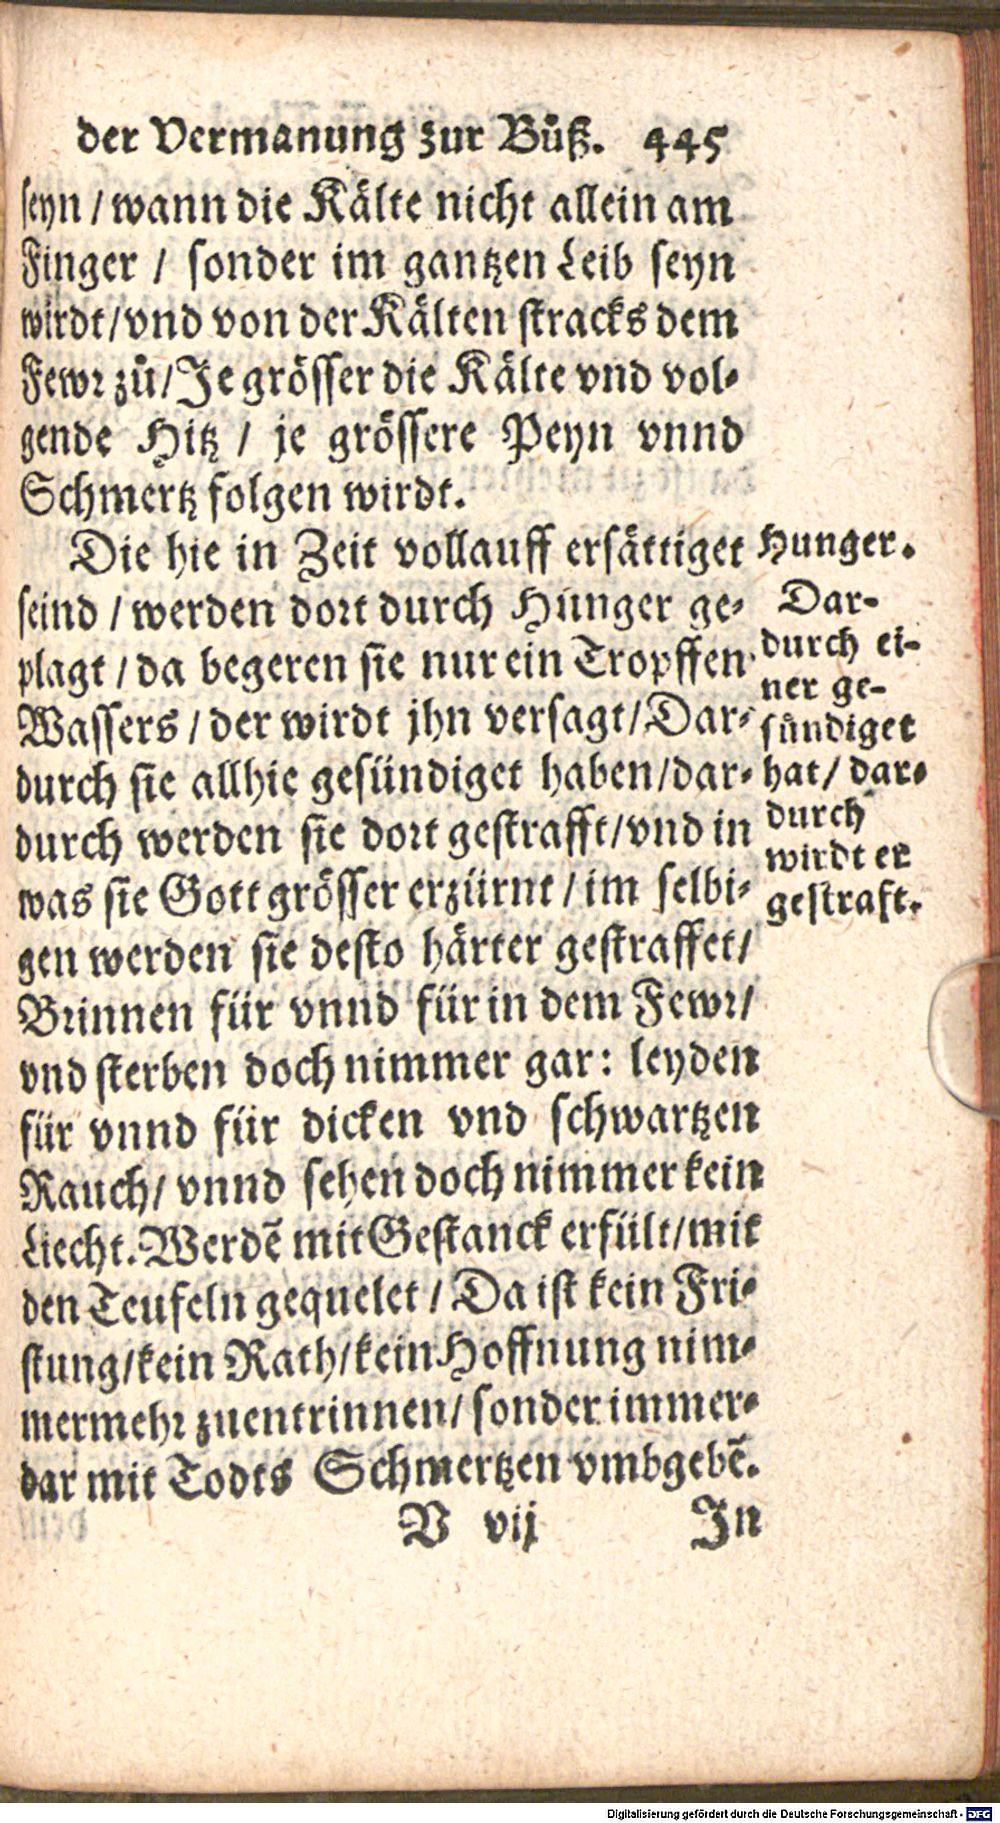 der Vermanung zur Bůß. 445
seyn / wann die Kälte nicht allein am
Finger / sonder im gantzen Leib seyn
wirdt/vnd von der Kälten stracks dem
Fewr zů/Je grösser die Kälte vnd vol-
gende Hitz / je grössere Peyn vnnd
Schmertz folgen wirdt.
Die hie in Zeit vollauff ersättiget
seind / werden dort durch Hunger ge-
plagt / da begeren sie nur ein Tropffen
Wassers / der wirdt jhn versagt/Dar-
durch sie allhie gesündiget haben/dar-
durch werden sie dort gestrafft/vnd in
was sie Gott grösser erzürnt / im selbi-
gen werden sie desto härter gestraffet/
Brinnen für vnnd für in dem Fewr/
vnd sterben doch nimmer gar: leyden
für vnnd für dicken vnd schwartzen
Rauch/ vnnd sehen doch nimmer kein
Liecht. Werdẽ mit Gestanck erfült/mit
den Teufeln gequelet / Da ist kein Fri-
stung/kein Rath/kein Hoffnung nim-
mermehr zuentrinnen/ sonder immer-
dar mit Todts Schmertzen vmbgebẽ.
V vij In
Hunger.
Dar-
durch ei-
ner ge-
sündiget
hat/ dar-
durch
wirdt er
gestraft.
Digitalisierung gefördert durch die Deutsche Forschungsgemeinschaft - DFG